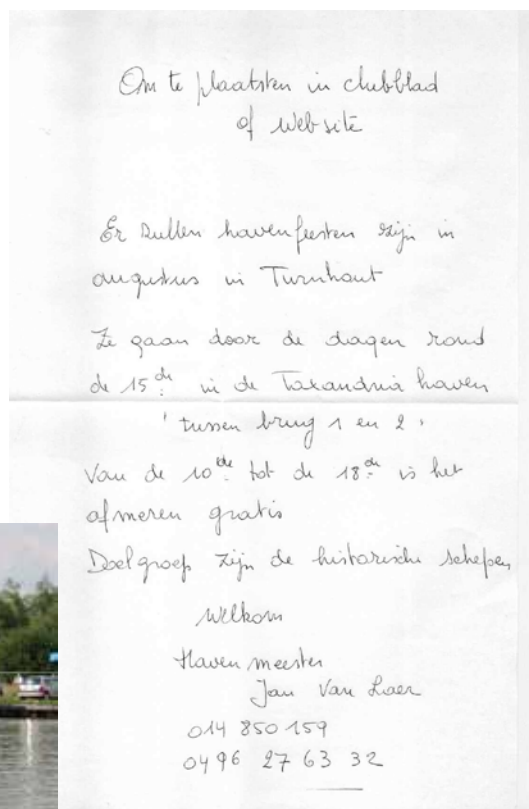 Om te plaatsten in clubblad
of website
Er zullen havenfeesten zijn in
augustus in Turnhout
Ze gaan door de dagen rond
de 15de in de Taxandria haven
' tussen brug 1 en 2 '
Van de 10de tot de 18de is het
afmeren gratis
Doelgroep zijn de historische schepen
Welkom
Havenmeester
Jan Van Loer
014 850 159
0496 27 63 32